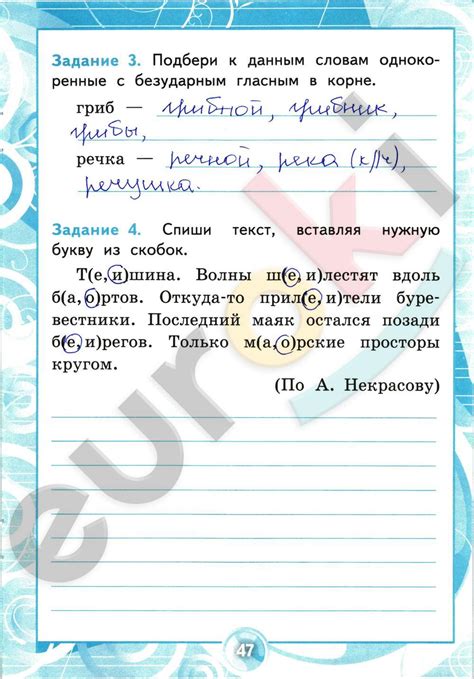 Задание 3. Подбери к данным словам одноко-
ренные с безударным гласным в корне.
гриб — грибной, грибник,
грибы,
речка — речной, река (к//ч),
речушка.
Задание 4. Спиши текст, вставляя нужную
букву из скобок.
Т(е, и)шина. Волны ш(е, и)лестят вдоль
б(а, о)ртов. Откуда-то прил(е, и)тели буре-
вестники. Последний маяк остался позади
б(е, и)регов. Только м(а, о)рские просторы
кругом.
(По А. Некрасову)
47
euroki